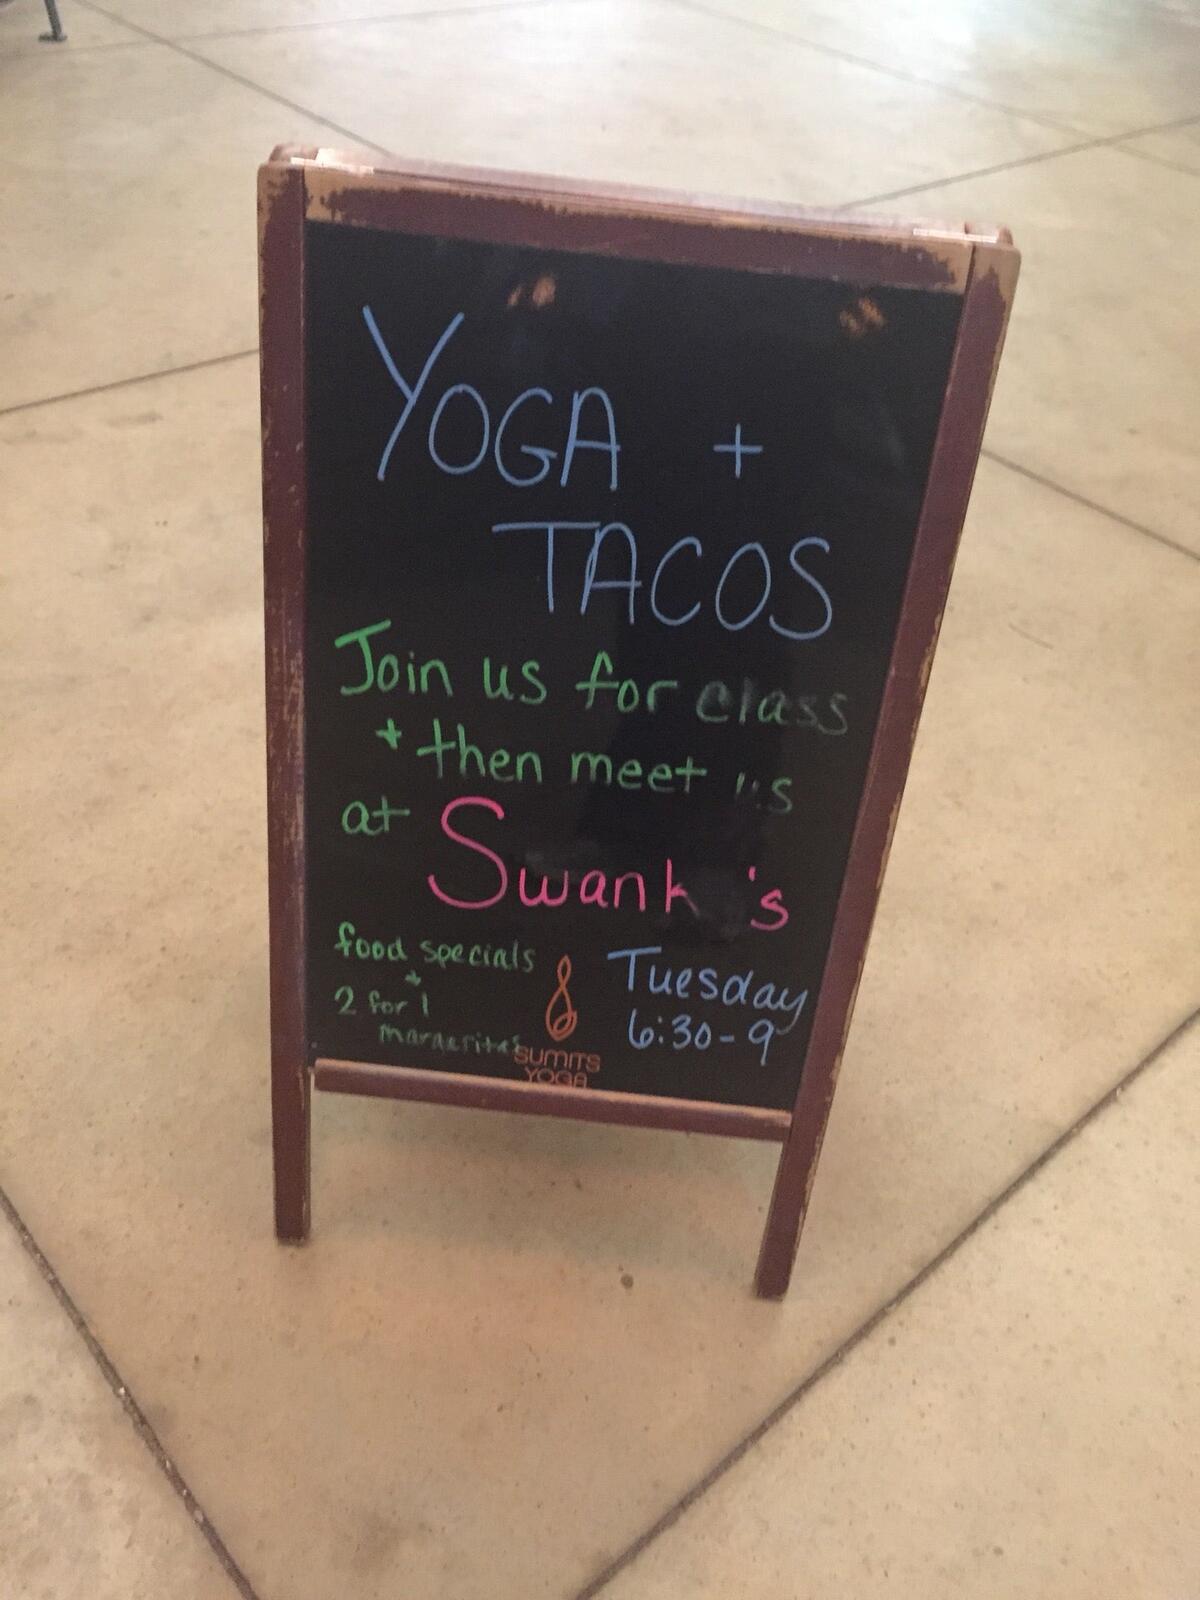 YOGA +
TACOS
Join us for class
+ then meet us
at Swank's
food specials
+
2 for 1
margaritas
Tuesday
6:30-9
SUMITS
YOGA